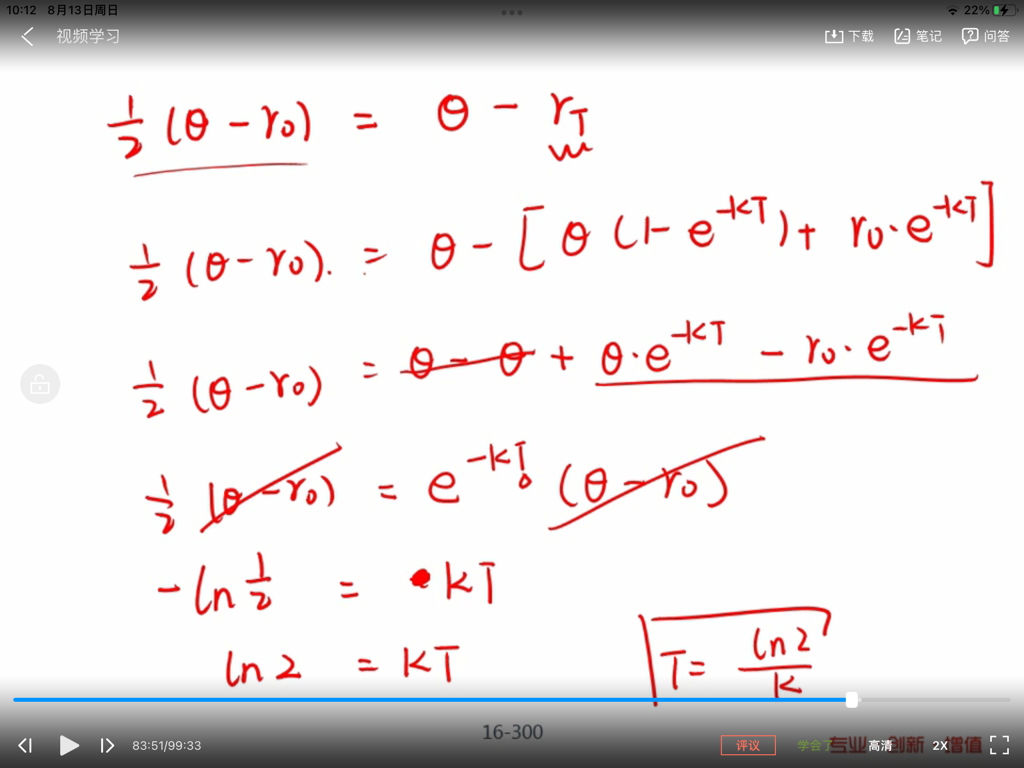 10:12 8月13日周日
22%
视频学习
下载 笔记 问答
1/2 (θ - r₀) = θ - r_T
1/2 (θ - r₀). = θ - [θ (1 - e^{-kT}) + r₀·e^{-kT}]
1/2 (θ - r₀) = θ - θ + θ·e^{-kT} - r₀·e^{-kT}
1/2 (θ - r₀) = e^{-kT} (θ - r₀)
-ln 1/2 = kT
ln 2 = kT
T = ln 2/k
16-300
83:51/99:33
评议 学会了 专业 创新 增值
高清 2X